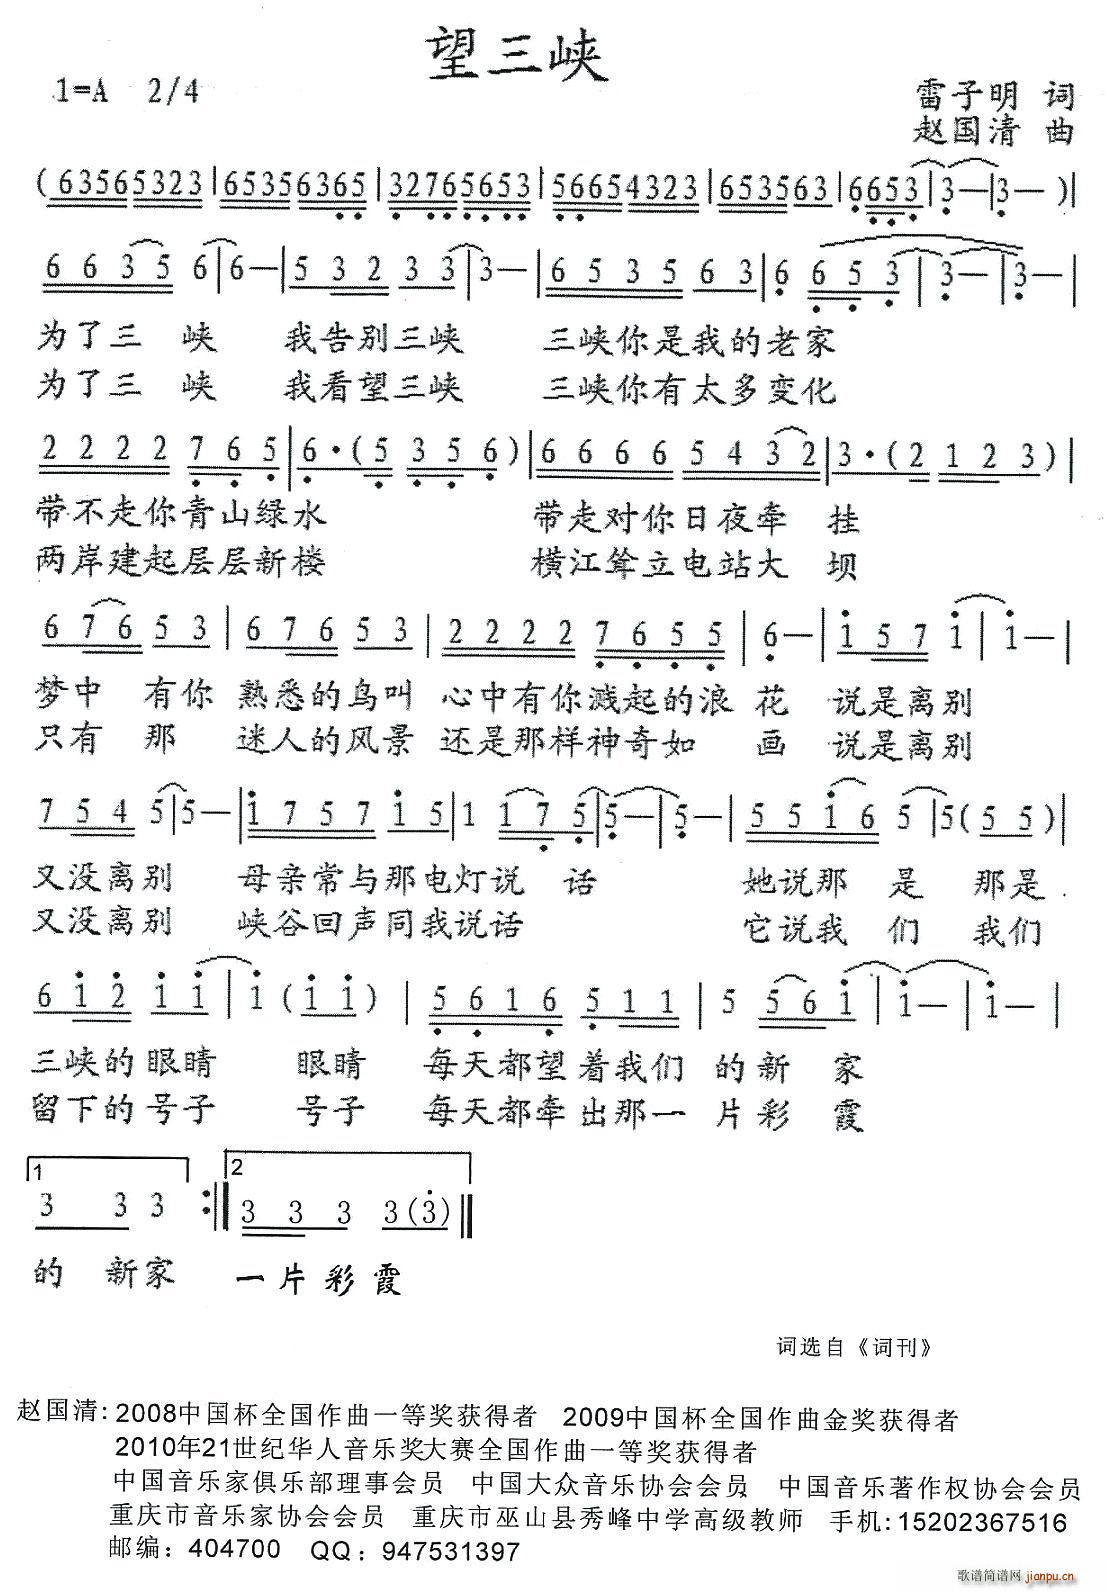 望三峡
1=A 2/4
雷子明 词
赵国清 曲
(63565323|65356365|32765653|56654323|65356563|6653|3—|3—)|
6635 6|6—|532 33|3—|6535 63|6 653|3—|3—|
为了三 峡 我告别三峡 三峡你是我的老家
为了三 峡 我看望三峡 三峡你有太多变化
2222 765|6·(5 356)|6666 5432|3·(2 123)|
带不走你青山绿水 带走对你日夜牵 挂
两岸建起层层新楼 横江耸立电站大 坝
676 53|676 53|2222 7655|6—|157 1|1—|
梦中 有你 熟悉的鸟叫 心中有你溅起的浪 花 说是离别
只有 那 迷人的风景 还是那样神奇如 画 说是离别
754 5|5—|1757 15|1 175|5—|5—|5516 5|5(55)|
又没离别 母亲常与那电灯说 话 她说那 是 那是
又没离别 峡谷回声同我说话 它说我 们 我们
612 11|1(11)|5616 511|5 561|1—|1—|
三峡的眼睛 眼睛 每天都望着我们 的新 家
留下的号子 号子 每天都牵出那一 片彩 霞
1 2
3 3 3 :‖ 3 3 3 3(3)‖
的 新家 一片彩霞
词选自《词刊》
赵国清: 2008中国杯全国作曲一等奖获得者 2009中国杯全国作曲金奖获得者
2010年21世纪华人音乐奖大赛全国作曲一等奖获得者
中国音乐家俱乐部理事会员 中国大众音乐协会会员 中国音乐著作权协会会员
重庆市音乐家协会会员 重庆市巫山县秀峰中学高级教师 手机:15202367516
邮编：404700 QQ：947531397
歌谱简谱网 jianpu.cn